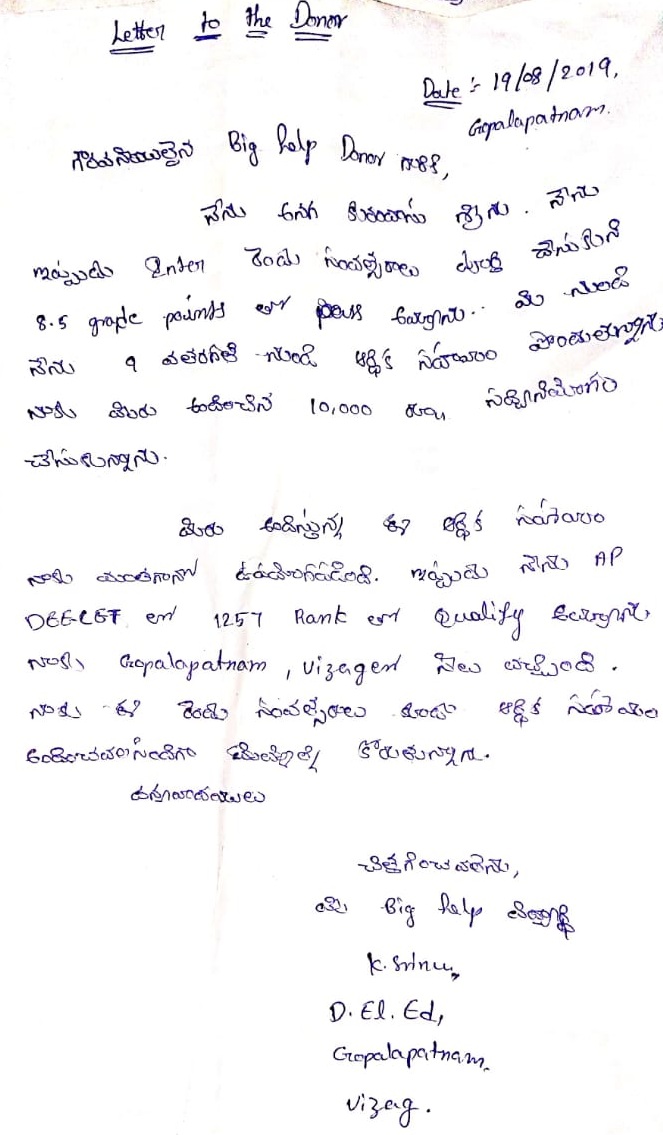 Letter to the Donor
Date :- 19/08/2019,
Gopalapatnam.
గౌరవనీయులైన Big help Donor గారికి,
నేను శ్రీను. నేను
ఇప్పుడు Inter రెండు సంవత్సరాలు పూర్తి చేసుకుని
8.5 grade points తో pass అయ్యాను.. మీ నుండి
నేను 9 వతరగతి నుండి ఆర్థిక సహాయం పొందుతున్నాను
నాకు మీరు అందించిన 10,000 రూ॥ సద్వినియోగం
చేసుకున్నాను.
మీరు అందిస్తున్న ఈ ఆర్థిక సహాయం
నాకు ఎంతగానో ఉపయోగపడింది. ఇప్పుడు నేను AP
DEECET లో 1257 Rank తో Qualify అయ్యాను
నాకు Gopalapatnam, Vizagలో సీటు వచ్చింది.
నాకు ఈ రెండు సంవత్సరాలు కూడా ఆర్థిక సహాయం
అందించవలసిందిగా మిమ్మల్ని కోరుతున్నాను.
ధన్యవాదములు
చిత్తగించవలెను,
మీ Big help విద్యార్థి
K. Srinu,
D. El. Ed,
Gopalapatnam,
Vizag.